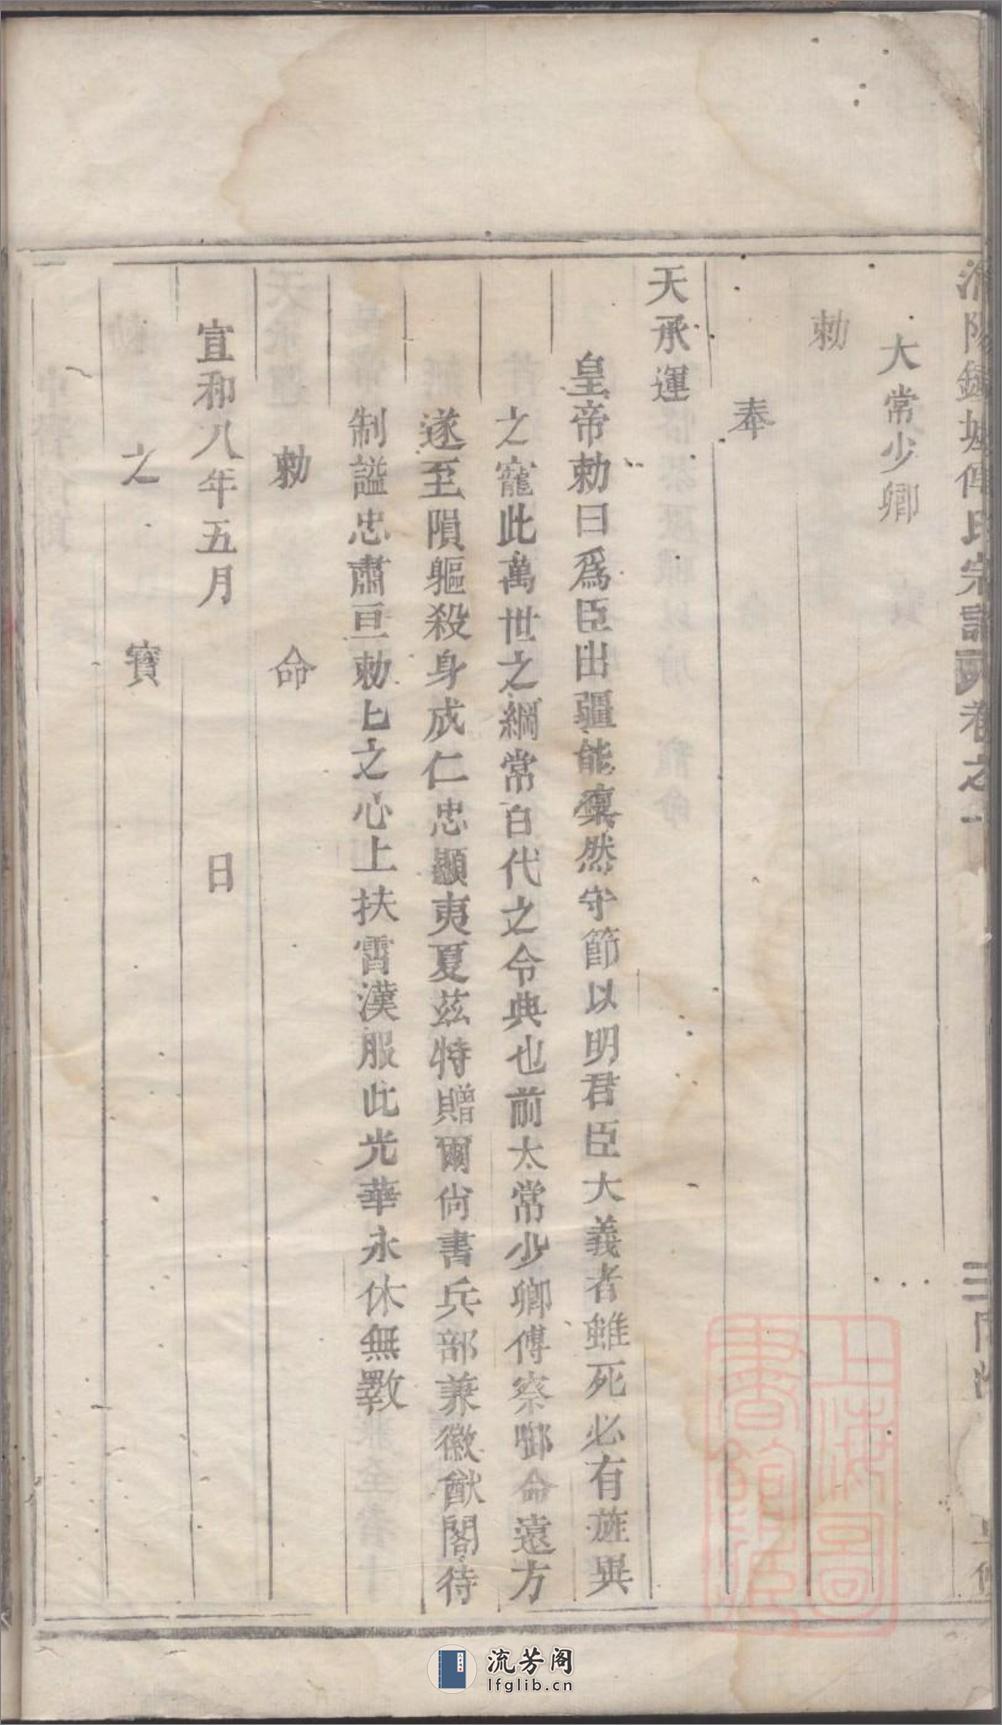 大常少卿
勅
奉
天承運
皇帝勅曰爲臣出疆能懍然守節以明君臣大義者雖死必有旌異
之寵此萬世之綱常百代之令典也前太常少卿傅察啣命遠方
遂至隕軀殺身成仁忠顯夷夏茲特贈爾尙書兵部兼徽猷閣待
制謚忠肅亘勅匕之心上扶霄漢服此光華永休無斁
勅命
宣和八年五月 日
之寶
氏宗譜 卷之一
上海圖書館藏
流芳阁
lfglib.cn